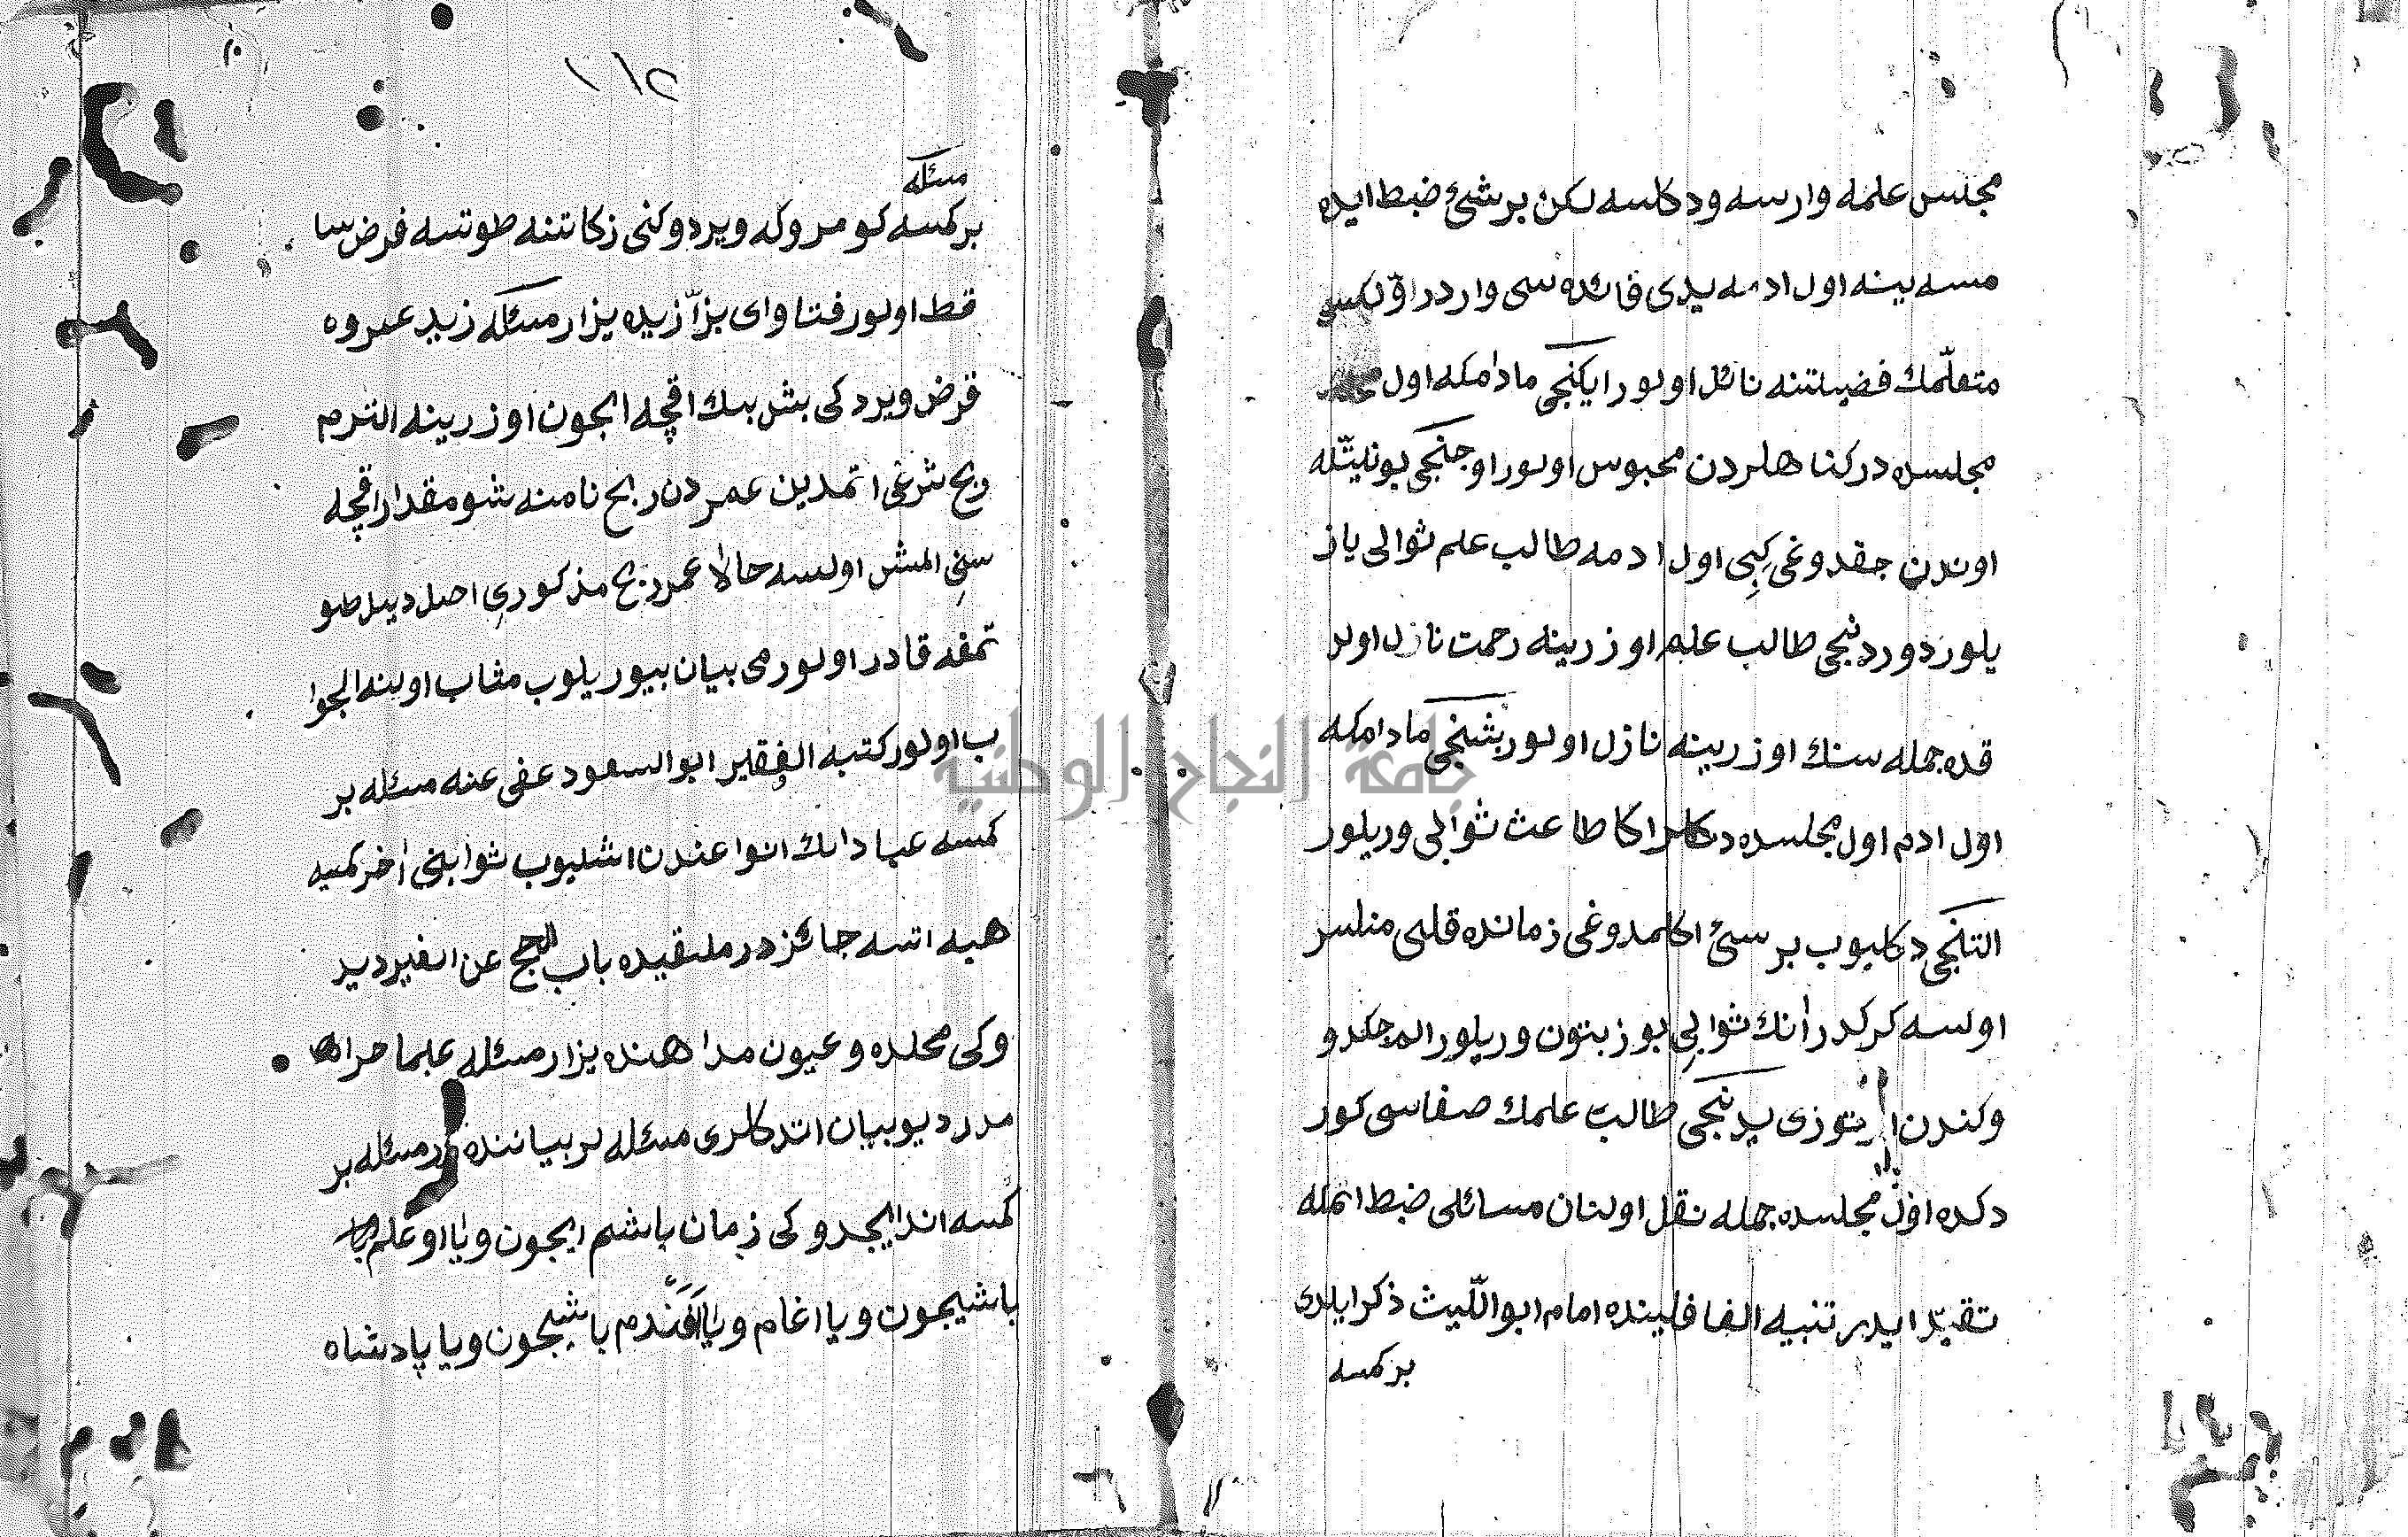 مجلس علمه وارسه ودكلسه لكن برشئ ضبط ايده
مسه ينه اول ادمه يدى فائده سى واردر اوّلكسى
متعلّمك فضيلتنه نائل اولور ايكنجى مادامكه اول
مجلسده دركناهلردن محبوس اولور اوجنجى بونيتّله
اوندن جقدوغى كبى اول ادمه طالب علم ثوالى ياز
يلور دوردنجى طالب علم اوزرينه رحمت نازل اولر
قده جمله سنك اوزرينه نازل اولور بشنجى مادامكه
اوّل ادم اول مجلسده دكلر اكا طاعت ثوابى وريلور
التنجى دكليوب بر سئ اكلمدوغى زمانده قلبى منلسر
اولسه كركدر انك ثوابى يوز بتون وريلور المجكدو
وكندن ايتوزى يدنجى طالب علمك صفاسى كور
دكده اوّل مجلسده جمله نقل اولنان مسائلى ضبط اتمكه
تقيّد ايدر تنبيه الغافلينده امام ابو اللّيث ذكر ايلدى
بر كمسه
١١٢
مسئله
بر كمسه كومروكه ويردوكنى زكاتنه طوتسه فرض سا
قط اولور فتاواى بزّازيده يزار مسئله زيد عمروه
قرض ويردكى بش بيك اقچه ايجون اوزرينه التزم
ربح شرعى اتمدين عمردن ربح نامنه شو مقدار اقچه
سنى المش اولسه حالا عمر ربح مذكورى اصل ديل طو
تمغه قادر اولور مى بيان بيوريلوب مثاب اولنه الجوا
ب اولور كتبه الفقير ابو السعود عفى عنه مسئله بر
كمسه عبادانك انواعندن اشليوب ثوابنى اخر كمسيه
هبه اتسه جائزدر ملتقيده باب الحج عن الغير ديد
وكى محلده وعيون مداهنده يزار مسئله علما حرا
مدر ديو بيان اتدكلرى مسئله لر بياننده در مسئله بر
كمسه اند ايجدوكى زمان باشم ايجون ويا اوغلم
باشيجون ويا اغام ويا افندم باشيجون ويا پادشاه
جامعة النجاح الوطنية